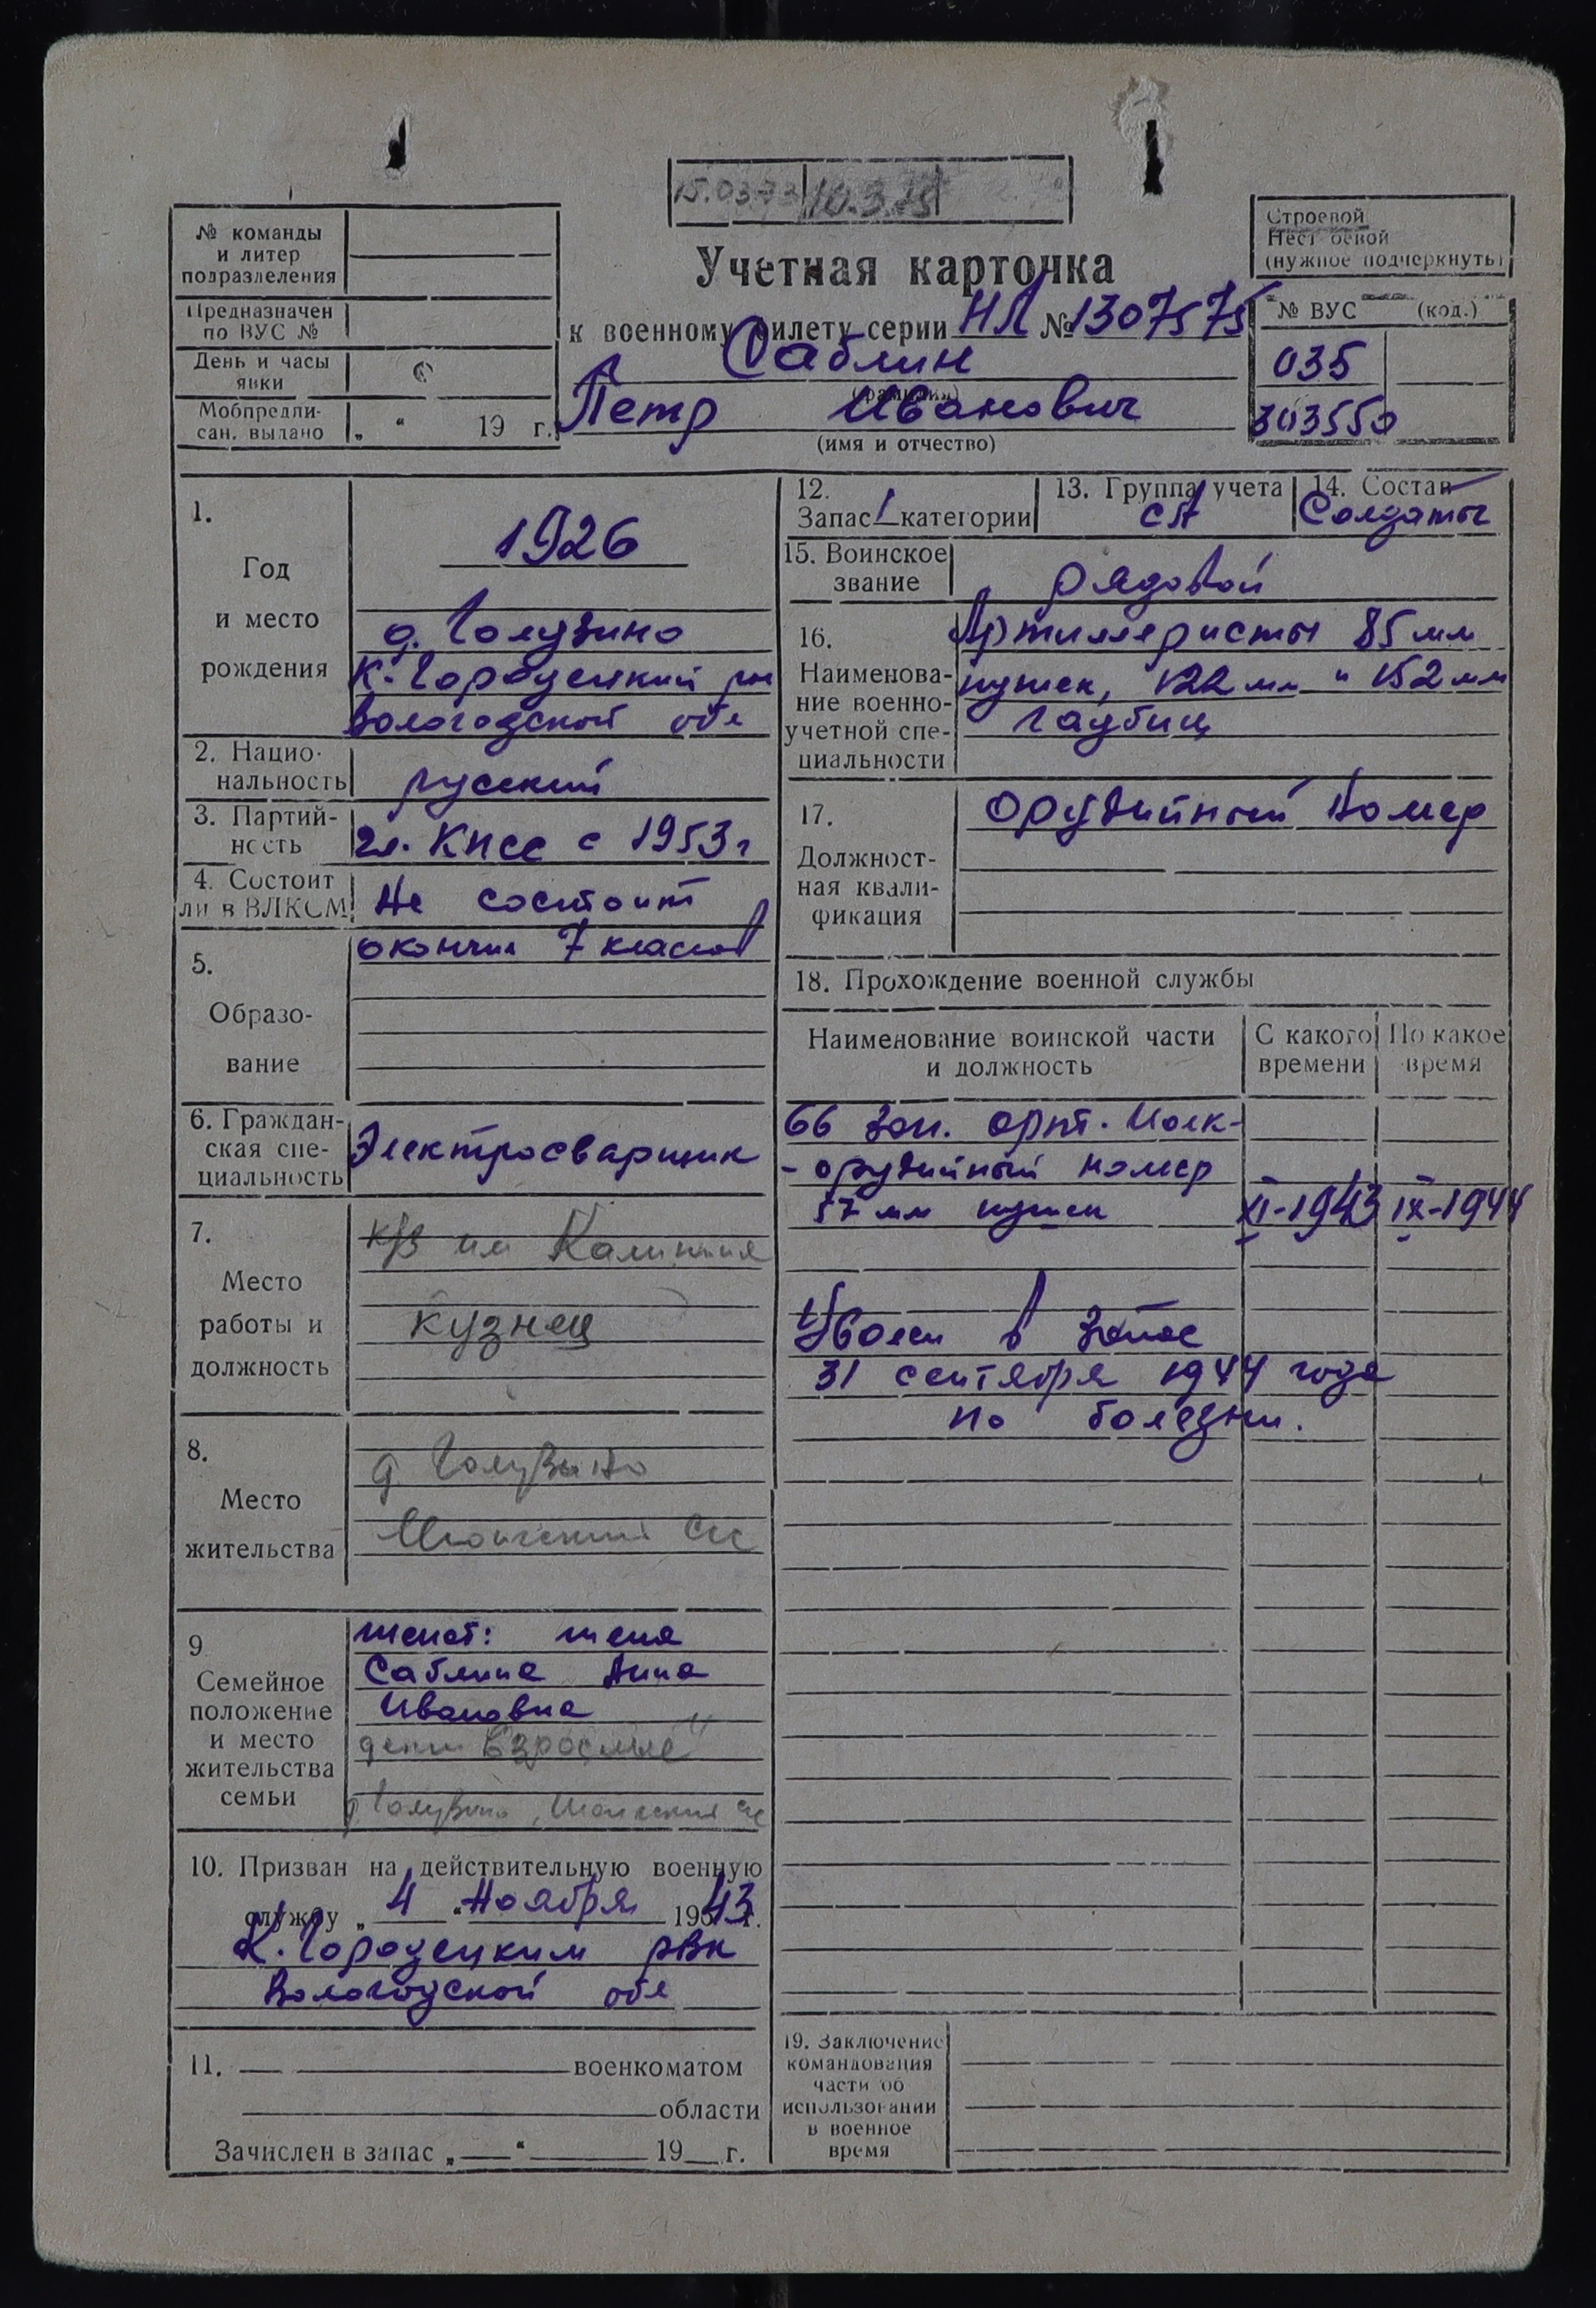 15.03.73 10.3.75
№ команды
и литер
подразделения
Предназначен
по ВУС №
День и часы
явки
Мобпредпи-
сан. выдано „ “ 19 г.
Учетная карточка
к военному билету серии НЛ № 1307575
Саблин
(фамилия)
Петр Иванович
(имя и отчество)
Строевой
Нестроевой
(нужное подчеркнуть)
№ ВУС (код.)
035
303550
1.
Год
и место
рождения
1926
д. Голузино
К-Городецкий рн
Вологодской обл
2. Нацио-
нальность
русский
3. Партий-
ность
чл. КПСС с 1953 г
4. Состоит
ли в ВЛКСМ
Не состоит
5.
Образо-
вание
окончил 7 классов
6. Граждан-
ская спе-
циальность
Электросварщик
7.
Место
работы и
должность
к/з им Калинина
кузнец
8.
Место
жительства
д Голузино
9
Семейное
положение
и место
жительства
семьи
женат: жена
Саблина Анна
Ивановна
дети взрослые
д. Голузино,
10. Призван на действительную военную
службу „ 4 “ Ноября 1943 г.
К.Городецким РВК
Вологодской обл
11. военкоматом
области
Зачислен в запас „ “ 19 г.
12.
Запас 1 категории
13. Группа учета
СА
14. Состав
Солдаты
15. Воинское
звание
рядовой
16.
Наименова-
ние военно-
учетной спе-
циальности
Артиллеристы 85 мм
пушек, 122 мм и 152 мм
гаубиц
17.
Должност-
ная квали-
фикация
Орудийный номер
18. Прохождение военной службы
Наименование воинской части
и должность
С какого
времени
По какое
время
66 зап. арт. полк-
- орудийный номер
57 мм пушек XI-1943 IX-1944
Уволен в запас
31 сентября 1944 года
по болезни.
19. Заключение
командования
части об
использовании
в военное
время